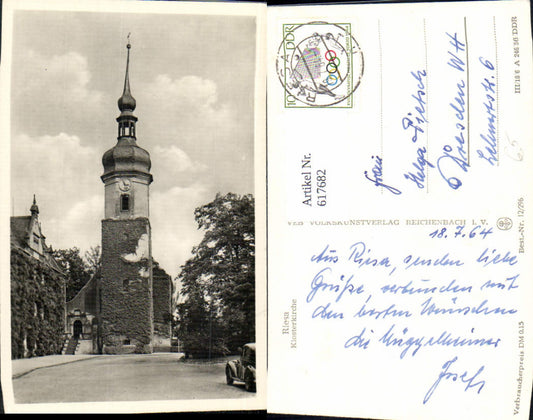 Riesa
Klosterkirche
DDR
10
Artikel Nr.
617682
Frau
Helga Pietsch
Dresden WH
VEB VOLKSKUNSTVERLAG REICHENBACH I. V.
18.7.64
Aus Riesa, senden liebe
Grüße verbunden mit
den besten Wünschen
die Müggelheimer
Josef
III/18/6 A 246/56 DDR
Best.-Nr. 12/296
Verbraucherpreis DM 0.15